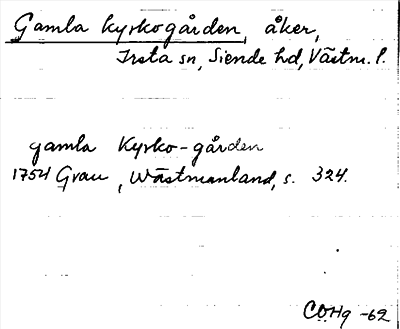 Gamla kyrkogården, åker,
Irsta sn, Siende hd, Västm. l.
gamla Kyrko-gården
1754 Grau, Wästmanland, s. 324.
COHg -62